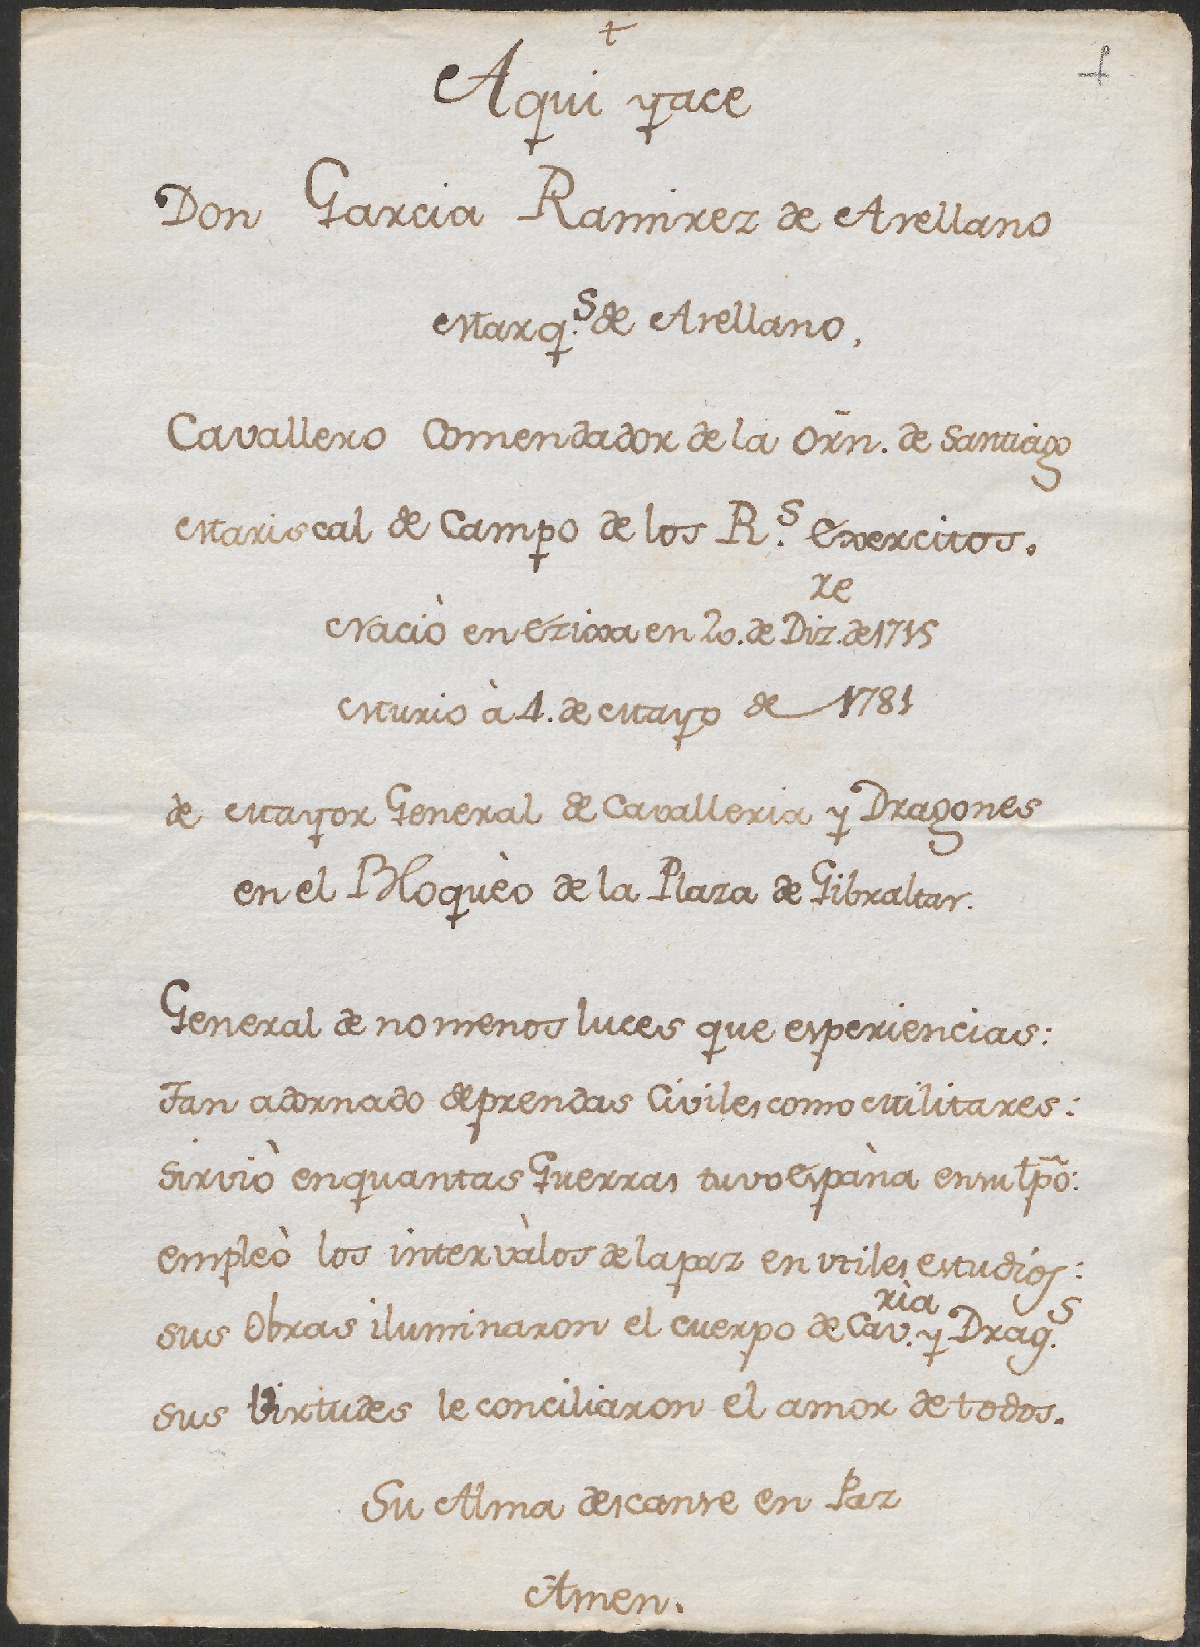 +
Aqui yace
Don Garcia Ramirez de Arellano
Marq.s de Arellano,
Cavallero Comendador de la Orn̄. de Santiago
Mariscal de Campo de los R.s Exercitos.
Naciò en Ezixa en 20. de Diz.re de 1715
Murio à 4. de Mayo de 1781
de Mayor General de Cavalleria y Dragones
en el Bloquèo de la Plaza de Gibraltar.
General de no menos luces que esperiencias:
Tan adornado de prendas Civiles como Militares:
Sirviò en quantas Guerras tuvo Espàna en su tp̃o:
empleò los intervàlos de la paz en utiles estudios:
sus Obras iluminaron el cuerpo de Cav.ria y Drag.s
sus Virtudes le conciliaron el amor de todos.
Su Alma descanse en Paz
Amen.